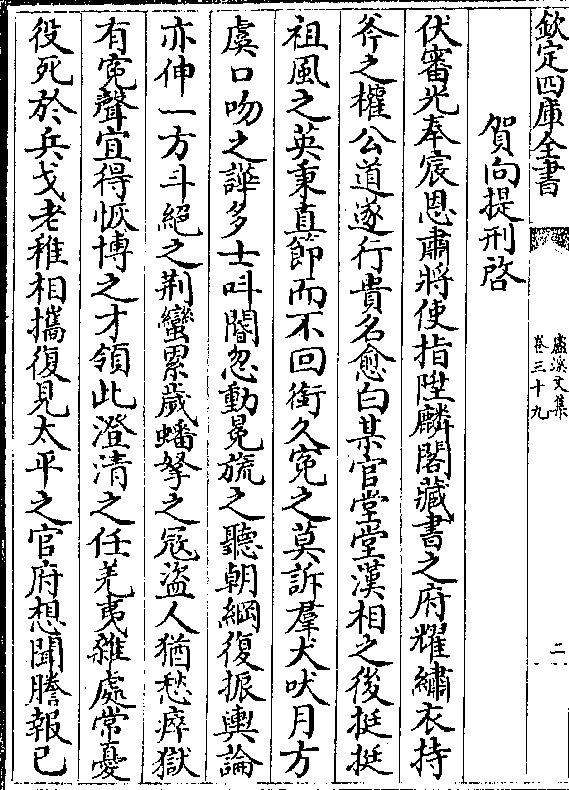 欽定四庫全書
盧溪文集
卷三十九
二
賀向提刑啓
伏審光奉宸恩肅將使指陞麟閣藏書之府耀繡衣持
斧之權公道遂行貴名愈白某官堂堂漢相之後挺挺
祖風之英秉直節而不回銜久寃之莫訴羣犬吠月方
虞口吻之譁多士呌閽忽動晃旒之聽朝綱復振輿論
亦伸一方斗絶之荆蠻累歲蟠拏之冦盜人猶愁瘁獄
有寃聲宜得恢博之才領此澄清之任羌夷雜處常憂
役死於兵戈老稚相攜復見太平之官府想聞謄報已